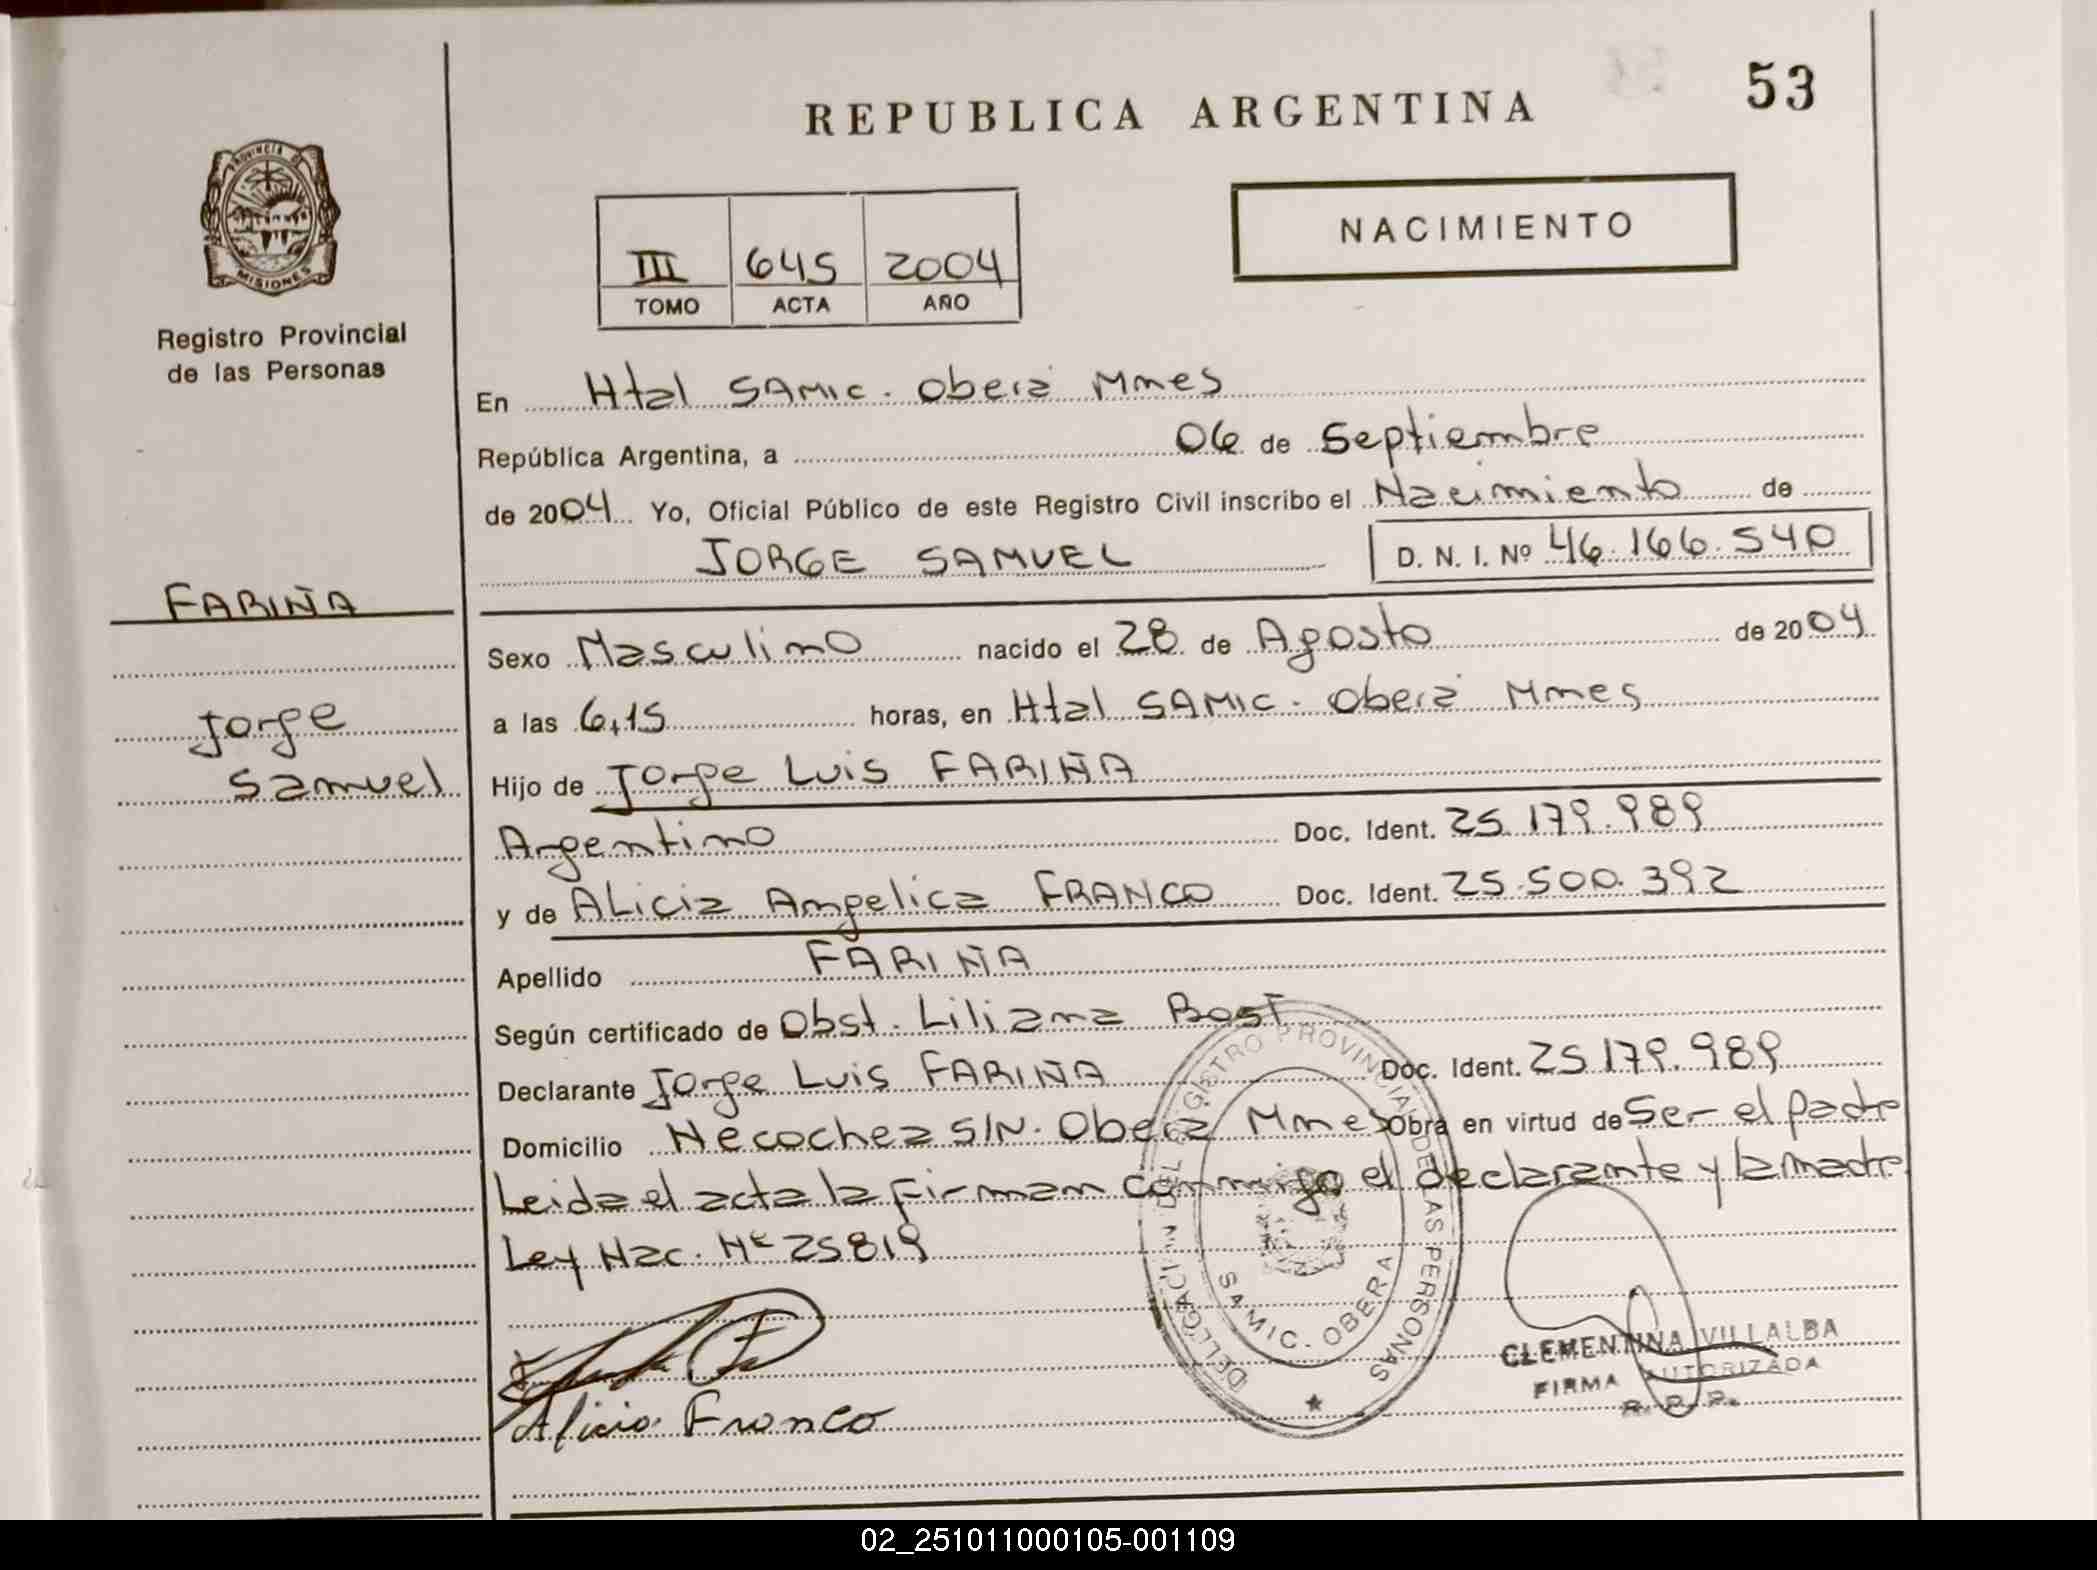 REPUBLICA ARGENTINA
53
PROVINCIA DE
MISIONES
Registro Provincial
de las Personas
NACIMIENTO
III 645 2004
TOMO ACTA AÑO
En Htal SAMIC. Oberá Mnes
República Argentina, a 06 de Septiembre
de 2004 Yo, Oficial Público de este Registro Civil inscribo el Nacimiento de
JORGE SAMUEL D. N. I. Nº 46.166.540
FARIÑA
Jorge
Samuel
Sexo Masculino nacido el 28 de Agosto de 2004
a las 6,15 horas, en Htal SAMIC. Oberá Mnes
Hijo de Jorge Luis FARIÑA
Argentino Doc. Ident. 25.179.989
y de Alicia Angelica FRANCO Doc. Ident. 25.500.392
Apellido FARIÑA
Según certificado de Obst. Liliana Bost
Declarante Jorge Luis FARIÑA Doc. Ident. 25.179.989
Domicilio Necochea S/N. Oberá Mnes Obra en virtud de Ser el padre
Leida el acta la firman conmigo el declarante y la madre
Ley Nac. Nº 25819
DELEGACION DEL REGISTRO PROVINCIAL DE LAS PERSONAS
SAMIC. OBERA
Alicia Franco
CLEMENTINA VILLALBA
FIRMA AUTORIZADA
R. P. P.
02_251011000105-001109